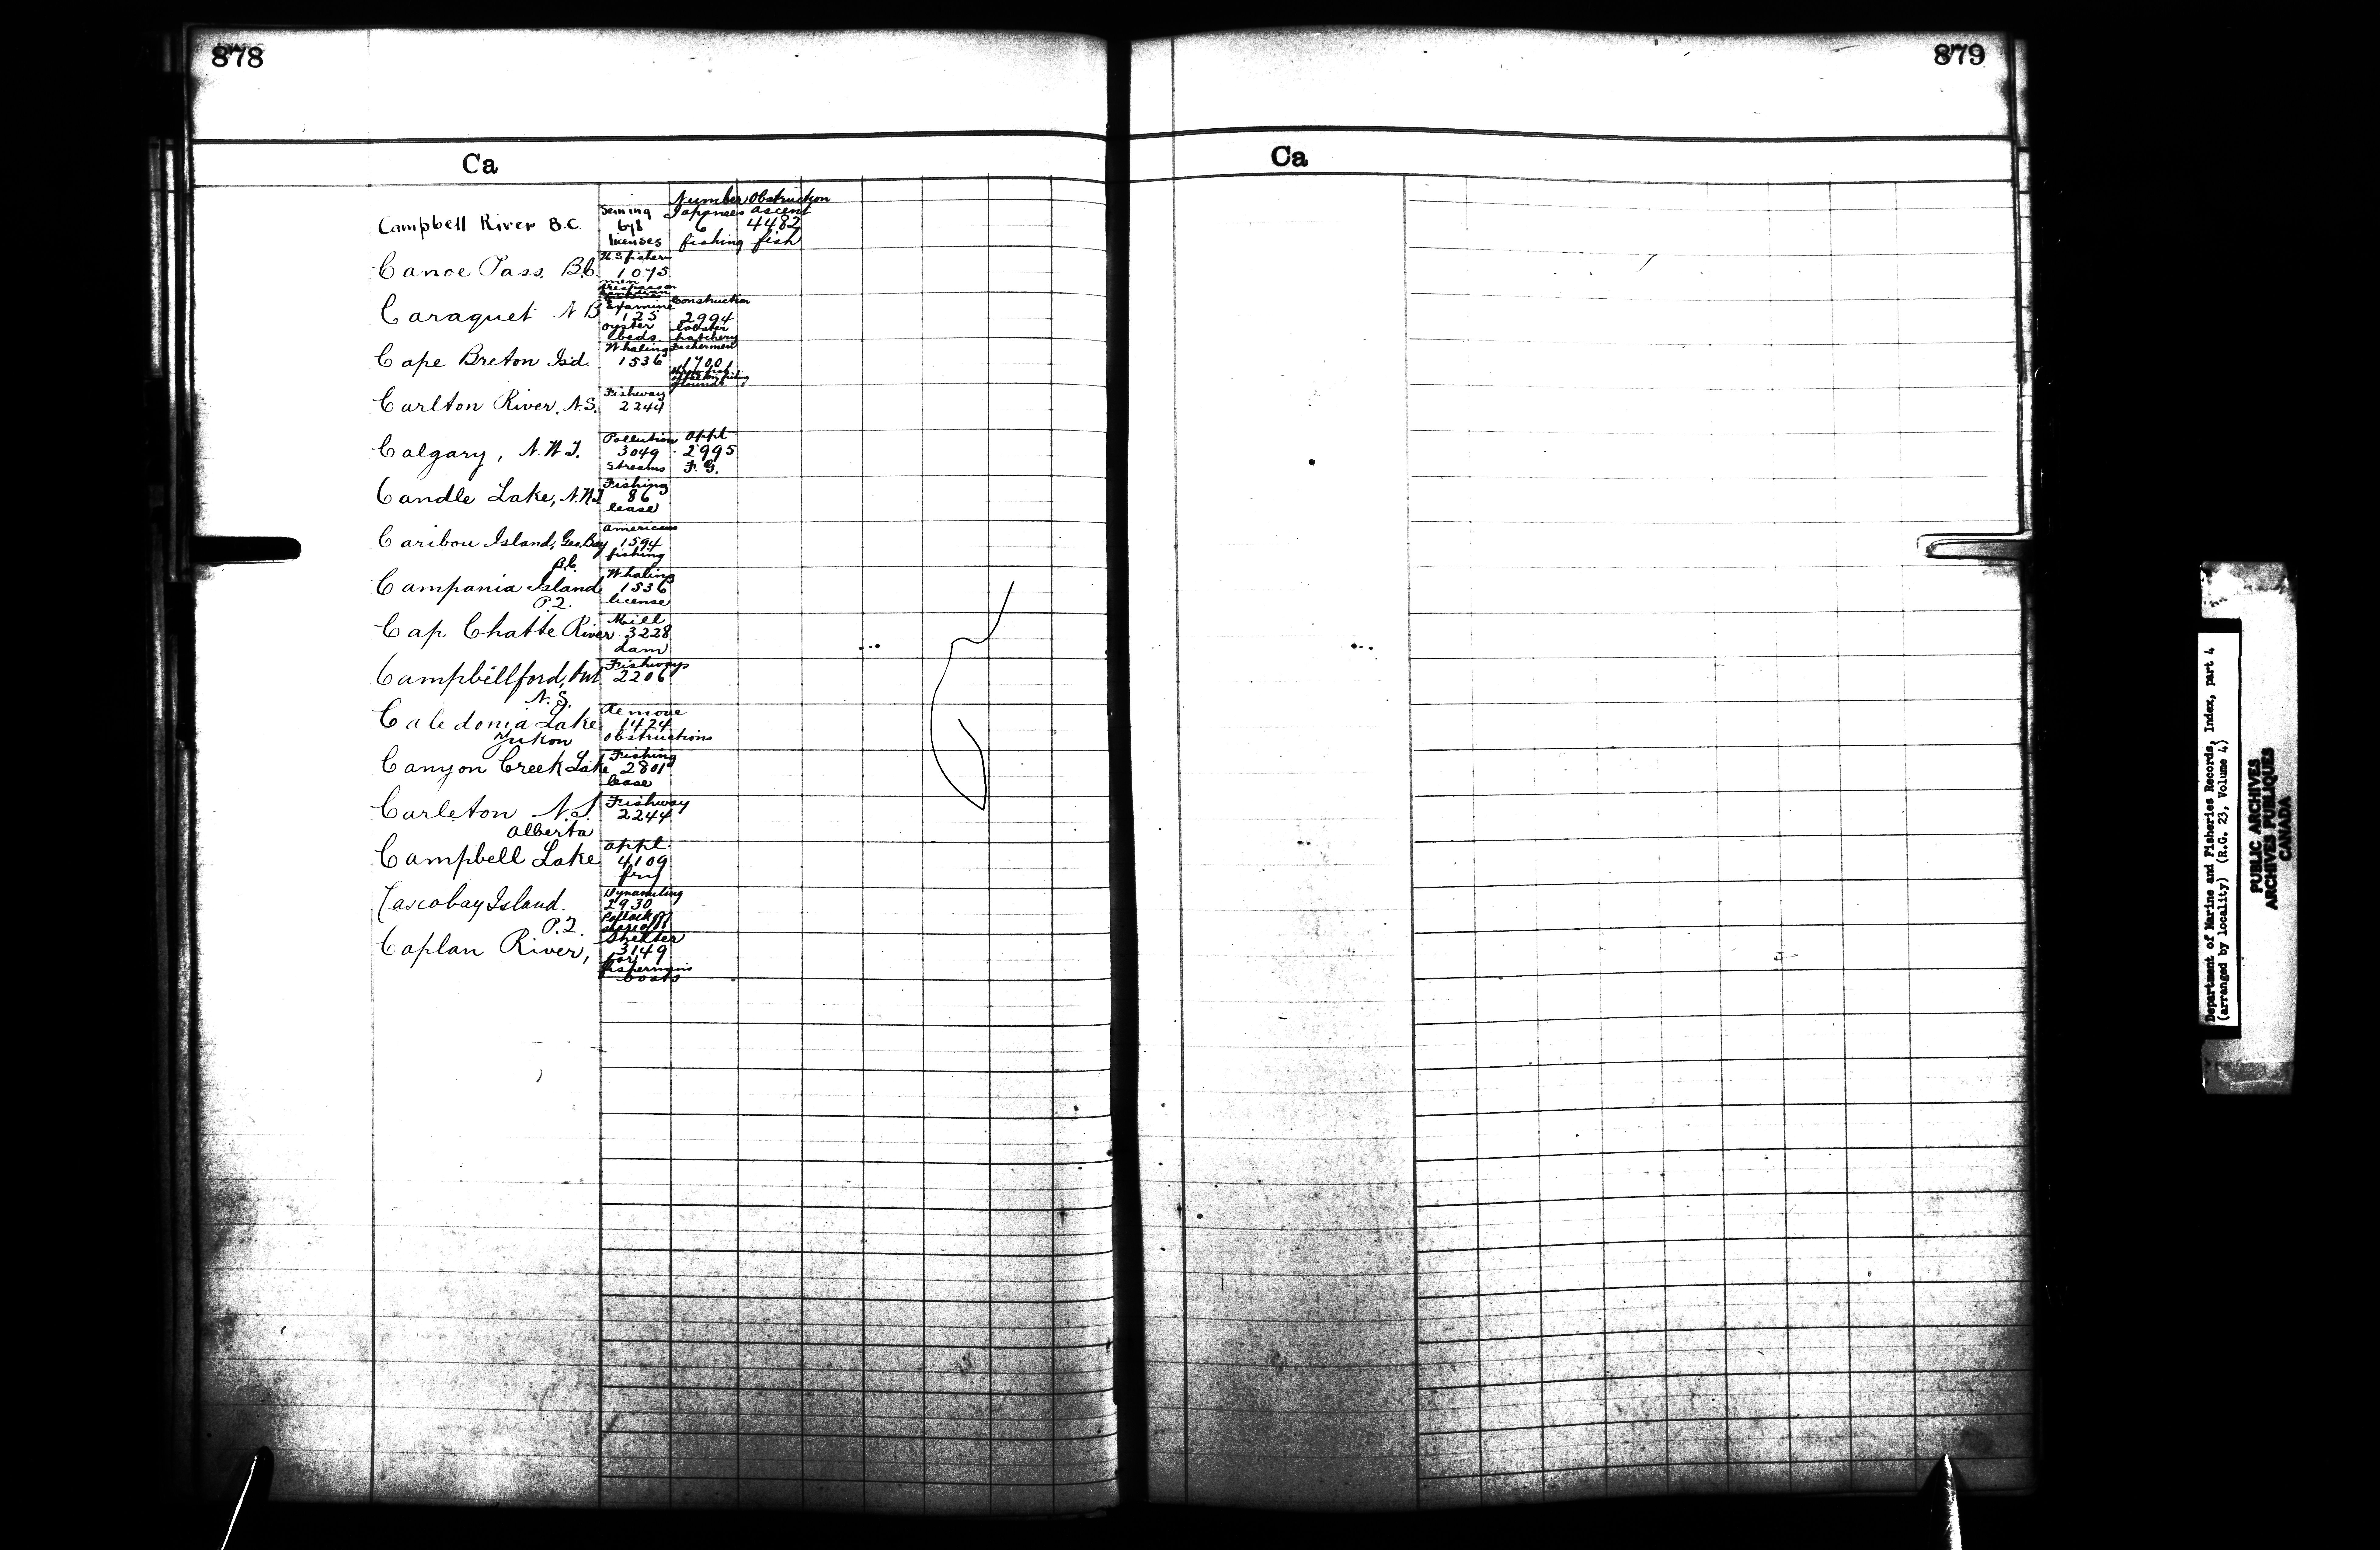 878
879
Ca
Ca
Number Obstruction
Seining Japanese ascent
Campbell River B.C. 678 6 4482
licenses fishing fish
U.S fisher
Canoe Pass. B.C. 1075
men
trespass on
Examine Construction
Caraquet N B 125 2994
oyster lobster
beds hatchery
Whaling Fishermen
Cape Breton Isd 1536 1700
grounds
Fishway
Carlton River, N.S. 2244
Pollution Appl
Calgary, N.W.T. 3049 2995
streams F.G.
Fishing
Candle Lake, N.W.T 86
lease
Americans
Caribou Island, Geo. Bay 1594
fishing
B.C. Whaling
Campania Island 1536
license
P.Q. Mill
Cap Chatte River 3228
dam
Fishways
Campbellford, Ont 2206
N.S. Remove
Caledonia Lake 1424
obstructions
Yukon Fishing
Canyon Creek Lake 2801
lease
Fishway
Carleton N.S. 2244
Alberta appl
Campbell Lake 4109
fry
Dynamiting
Cascobay Island. 2930
Pollock
P.Q. Shelter
Caplan River, 3149
for
fishermens
boats
Department of Marine and Fisheries Records, Index, part 4
(arranged by locality) (R.G. 23, Volume 4)
PUBLIC ARCHIVES
ARCHIVES PUBLIQUES
CANADA